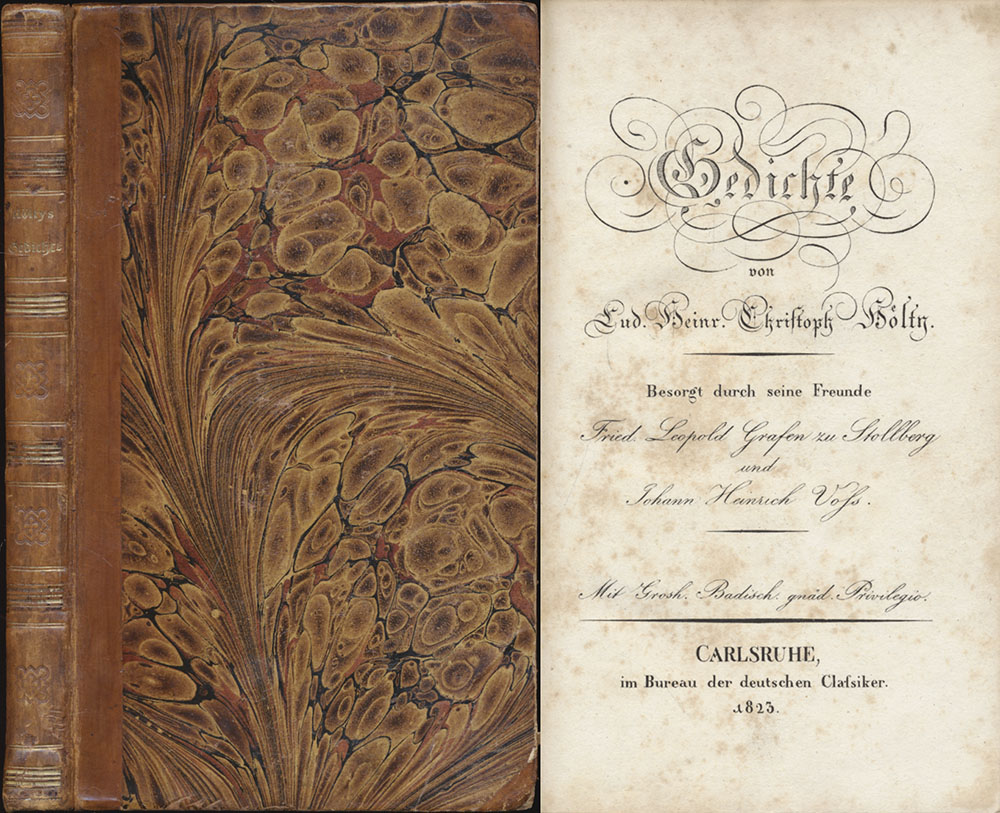 Hölty's
Gedichte
Gedichte
von
Lud. Heinr. Christoph Hölty.
Besorgt durch seine Freunde
Fried. Leopold Grafen zu Stollberg
und
Johann Heinrich Voſs.
Mit Grosh. Badisch. gnäd. Privilegio.
CARLSRUHE,
im Bureau der deutschen Claſsiker.
1823.